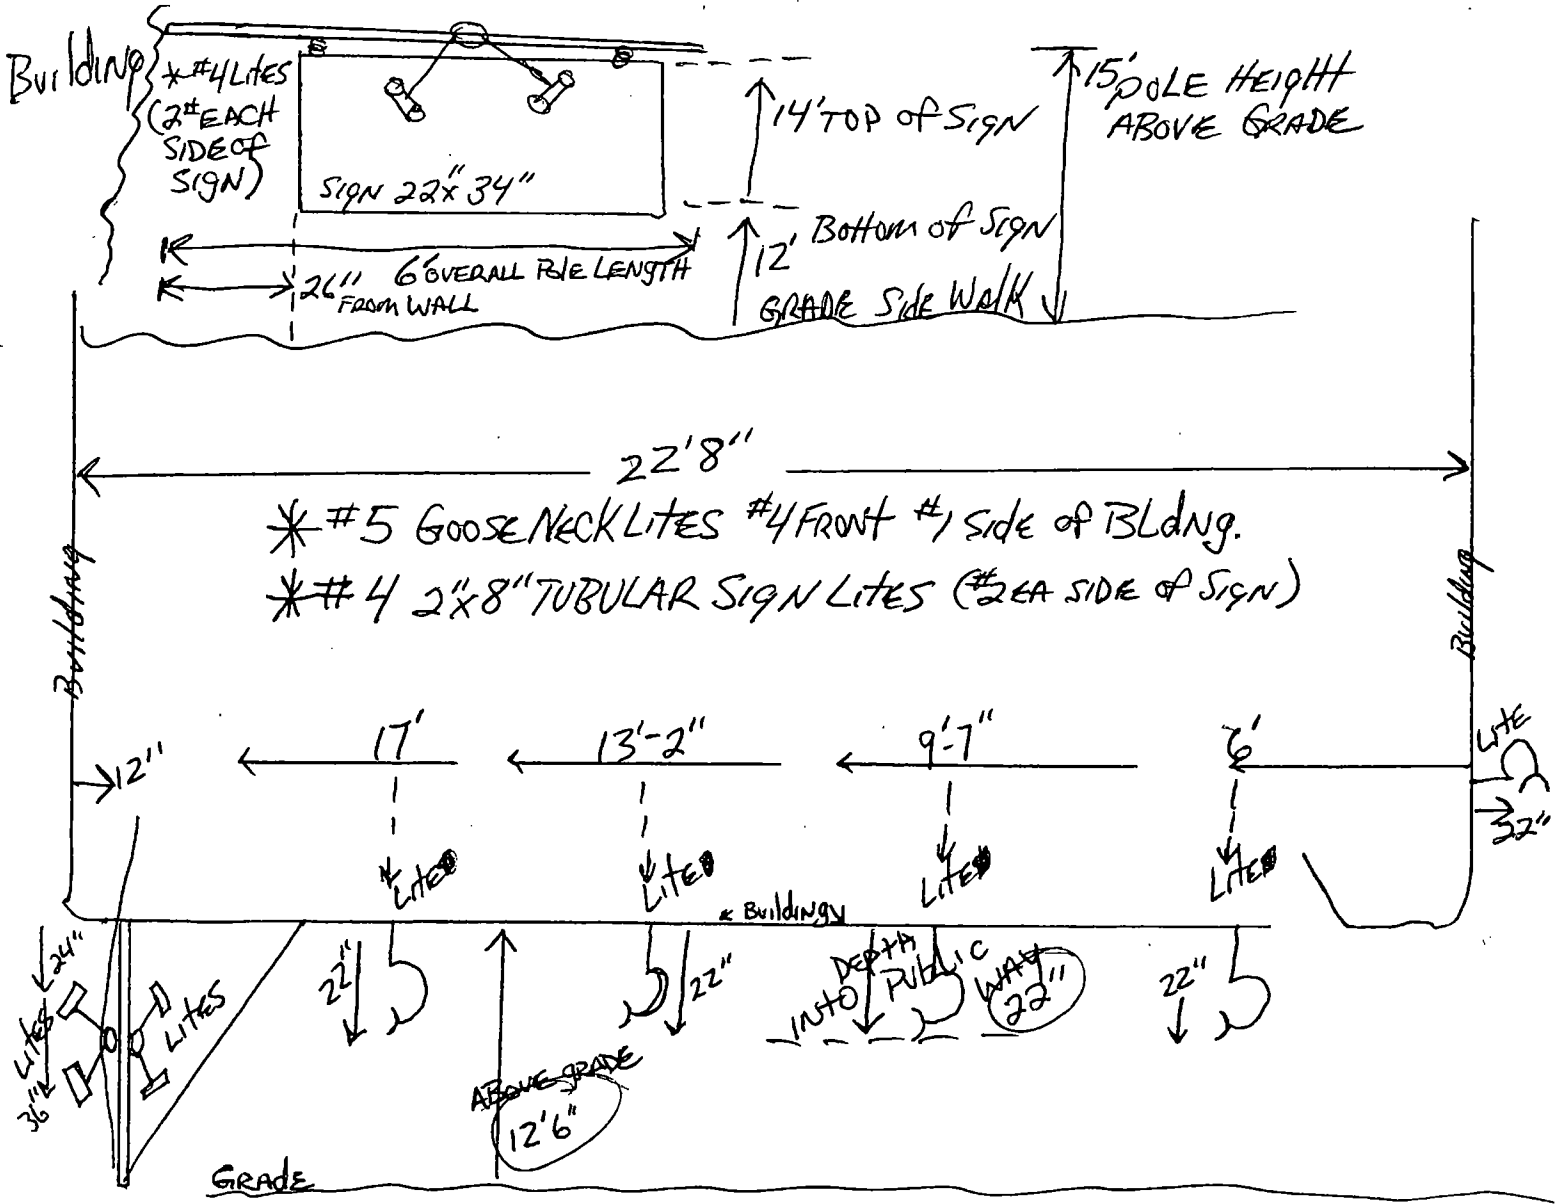 Building
* #4 LITES
(2# EACH
SIDE OF
SIGN)
SIGN 22"x 34"
14' TOP OF SIGN
15' POLE HEIGHT
ABOVE GRADE
12' Bottom of SIGN
6' OVERALL POLE LENGTH
26" FROM WALL
GRADE Side Walk
22'8"
* #5 GOOSE NECK LITES #4 FRONT #1 Side of BLdNg.
* #4 2"x8" TUBULAR SIGN LITES (#2 EA SIDE of SIGN)
Building
Building
12"
17'
13'-2"
9'-7"
6'
LITE
22"
LITE
LITE
LITE
LITE
Building
24"
LITES
36"
LITES
22"
22"
DEPTH
INTO PUBLIC
WAY
22"
22"
ABOVE GRADE
12'6"
GRADE